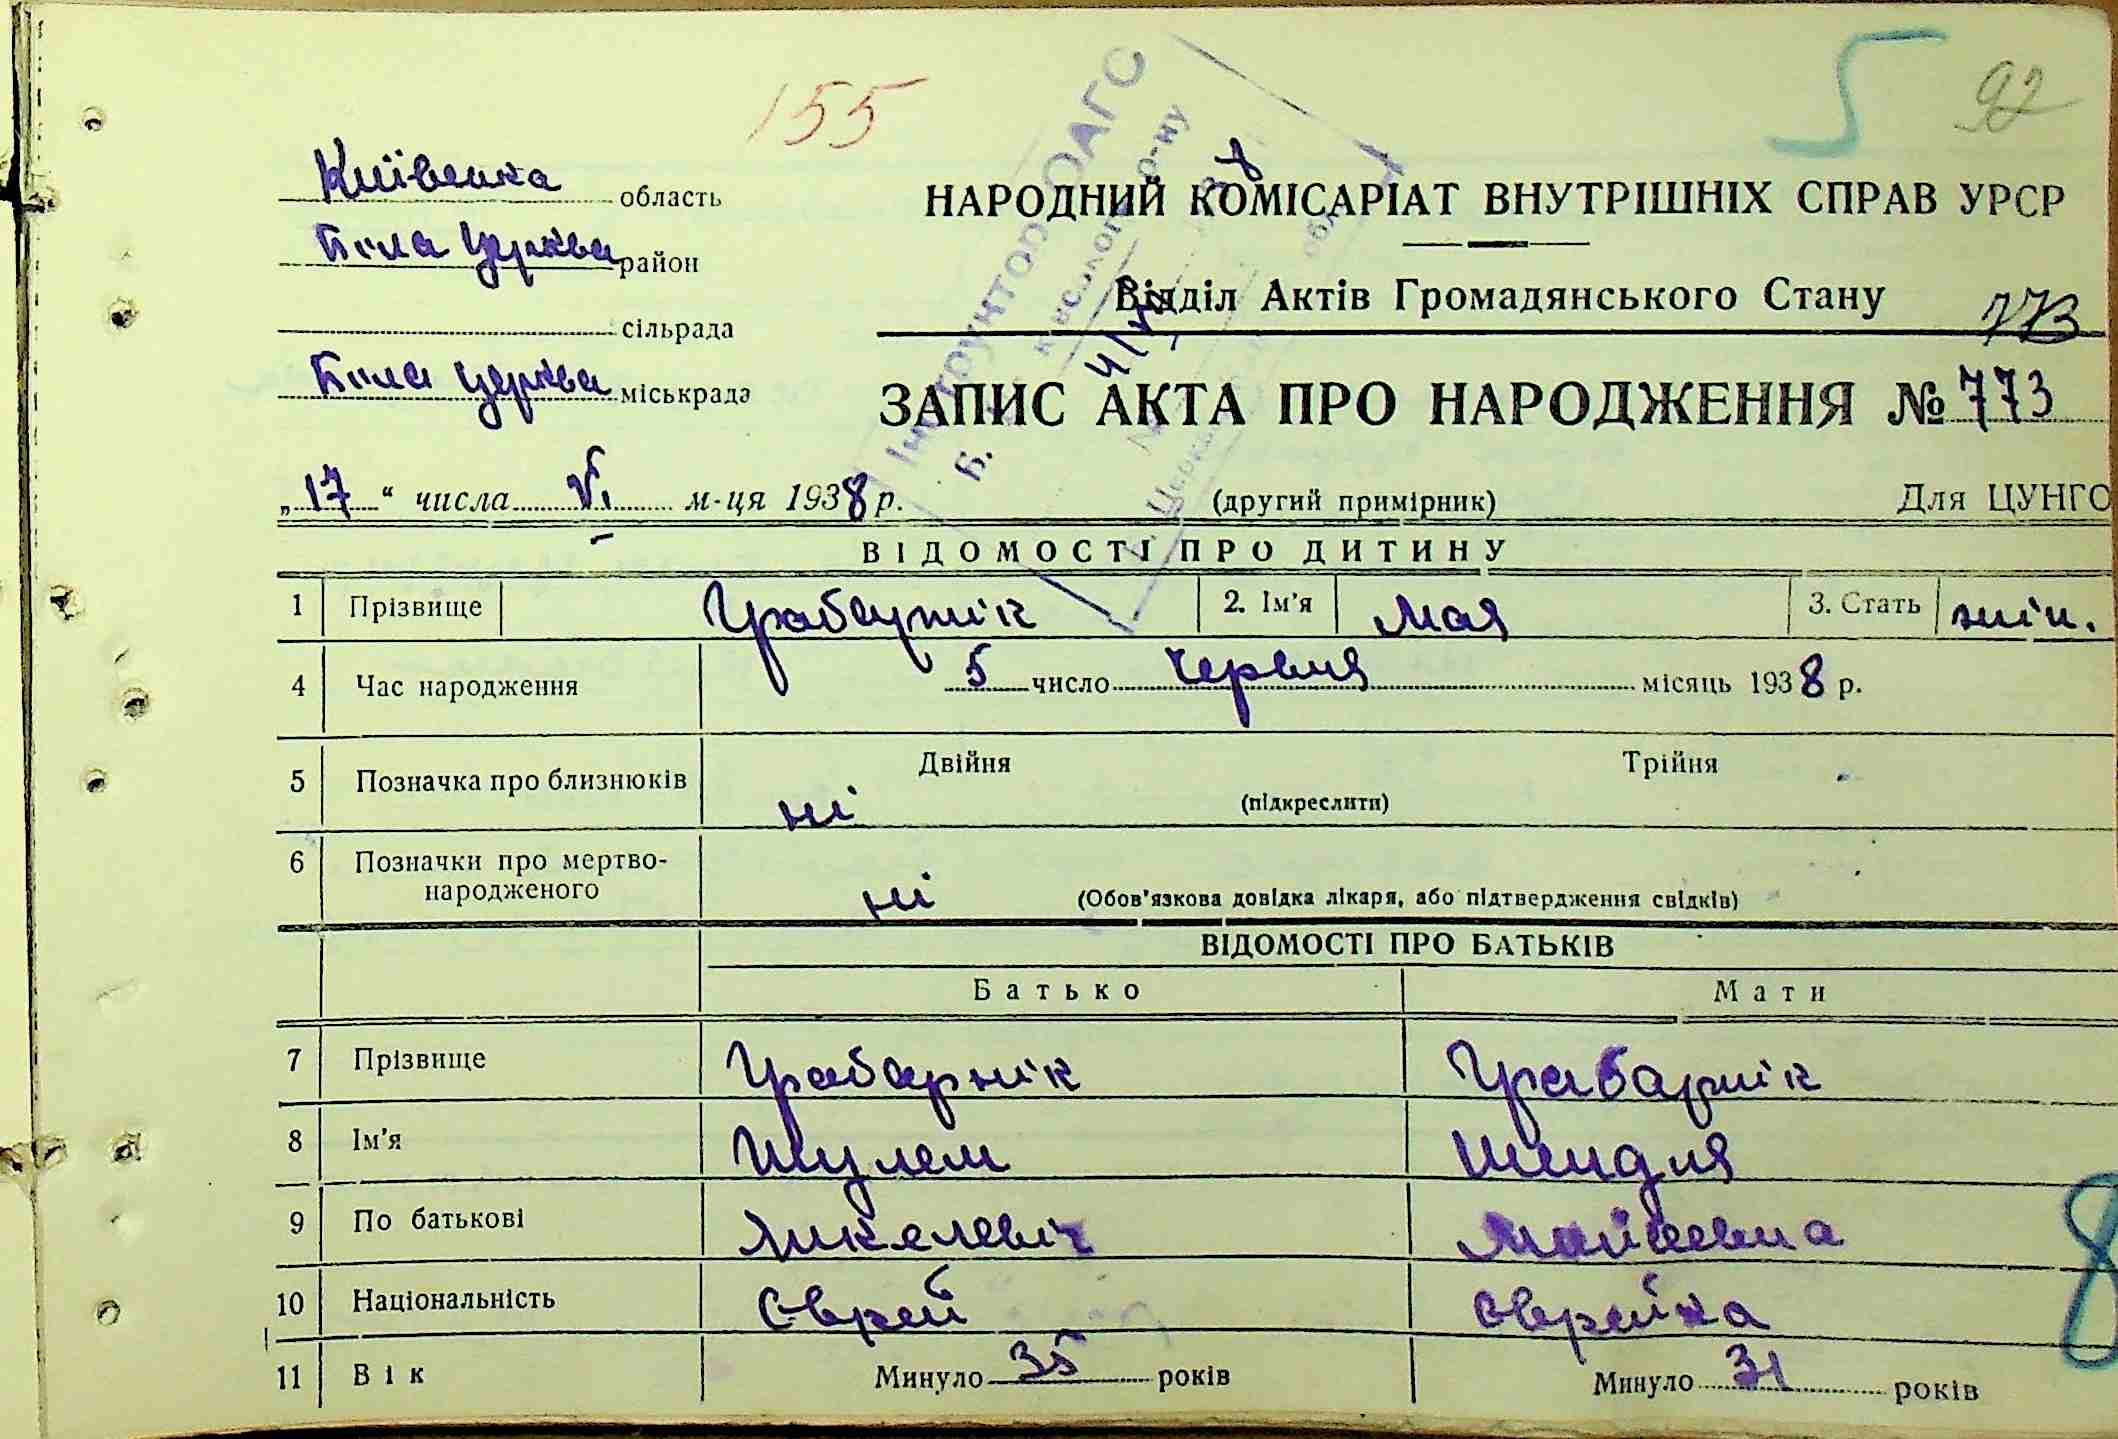 155
5
92
Київська область
Біла Церква район
сільрада
Біла Церква міськрада
НАРОДНИЙ КОМІСАРІАТ ВНУТРІШНІХ СПРАВ УРСР
Відділ Актів Громадянського Стану
773
ЗАПИС АКТА ПРО НАРОДЖЕННЯ № 773
„17“ числа VI м-ця 1938 р.
(другий примірник)
Для ЦУНГО
ВІДОМОСТІ ПРО ДИТИНУ
1 Прізвище Грабарнік 2. Ім'я Мая 3. Стать жін.
4 Час народження 5 число червня місяць 1938 р.
5 Позначка про близнюків ні Двійня Трійня
(підкреслити)
6 Позначки про мертво-
народженого ні (Обов'язкова довідка лікаря, або підтвердження свідків)
ВІДОМОСТІ ПРО БАТЬКІВ
Батько Мати
7 Прізвище Грабарнік Грабарнік
8 Ім'я Шулем Шендля
9 По батькові Мойсеевна
10 Національність Єврей Єврейка
11 Вік Минуло 35 років Минуло 31 років
8